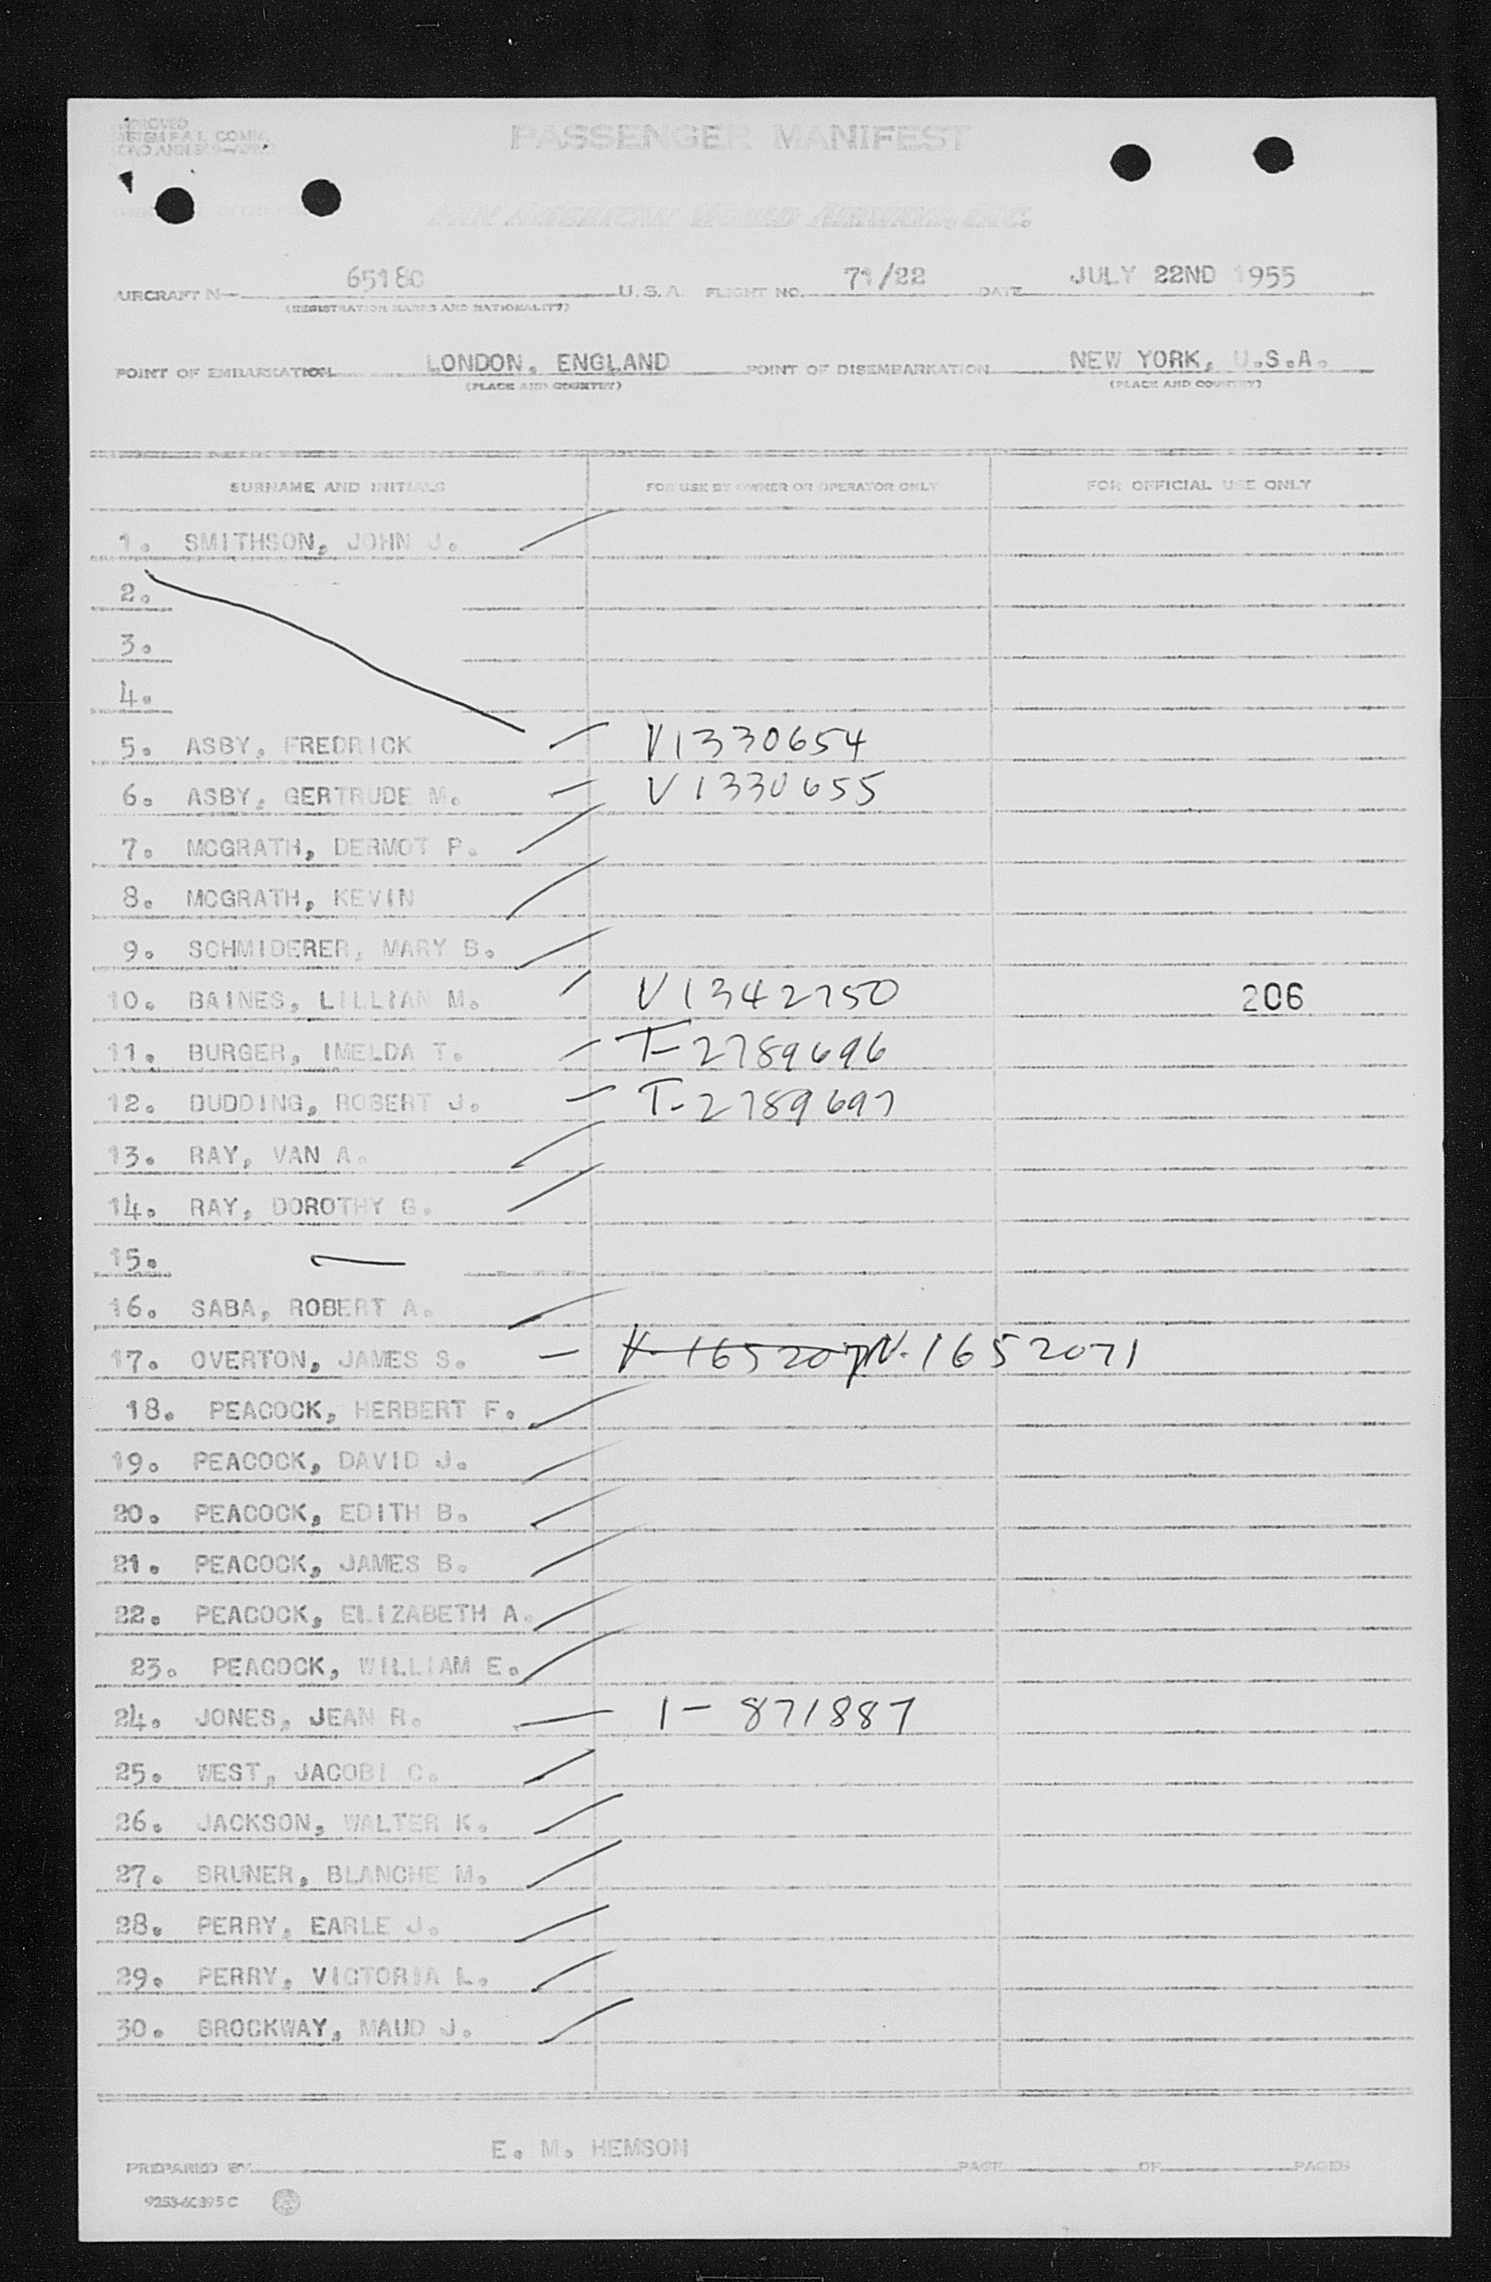 PASSENGER MANIFEST
PAN AMERICAN WORLD AIRWAYS, INC.
AIRCRAFT N- 65180 U.S.A. FLIGHT NO. 71/22 DATE JULY 22ND 1955
(REGISTRATION MARKS AND NATIONALITY)
POINT OF EMBARKATION LONDON, ENGLAND POINT OF DISEMBARKATION NEW YORK, U.S.A.
(PLACE AND COUNTRY) (PLACE AND COUNTRY)
SURNAME AND INITIALS FOR USE BY OWNER OR OPERATOR ONLY FOR OFFICIAL USE ONLY
1. SMITHSON, JOHN J.
2.
3.
4.
5. ASBY, FREDRICK V1330654
6. ASBY, GERTRUDE M. V1330655
7. MCGRATH, DERMOT P.
8. MCGRATH, KEVIN
9. SCHMIDERER, MARY B.
10. BAINES, LILLIAN M. V1342750 206
11. BURGER, IMELDA T. T-2789696
12. DUDDING, ROBERT J. T-2789697
13. RAY, VAN A.
14. RAY, DOROTHY G.
15. —
16. SABA, ROBERT A.
17. OVERTON, JAMES S. V-165207 V-1652071
18. PEACOCK, HERBERT F.
19. PEACOCK, DAVID J.
20. PEACOCK, EDITH B.
21. PEACOCK, JAMES B.
22. PEACOCK, ELIZABETH A.
23. PEACOCK, WILLIAM E.
24. JONES, JEAN R. I-871887
25. WEST, JACOBI C.
26. JACKSON, WALTER K.
27. BRUNER, BLANCHE M.
28. PERRY, EARLE J.
29. PERRY, VICTORIA L.
30. BROCKWAY, MAUD J.
PREPARED BY E. M. HEMSON PAGE OF PAGES